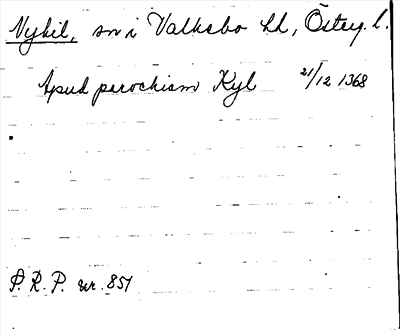 Nykil, sn i Valkebo hd,Österg. l.
Apud parochiam Kyl 21/12 1368
S. R. P. nr. 851